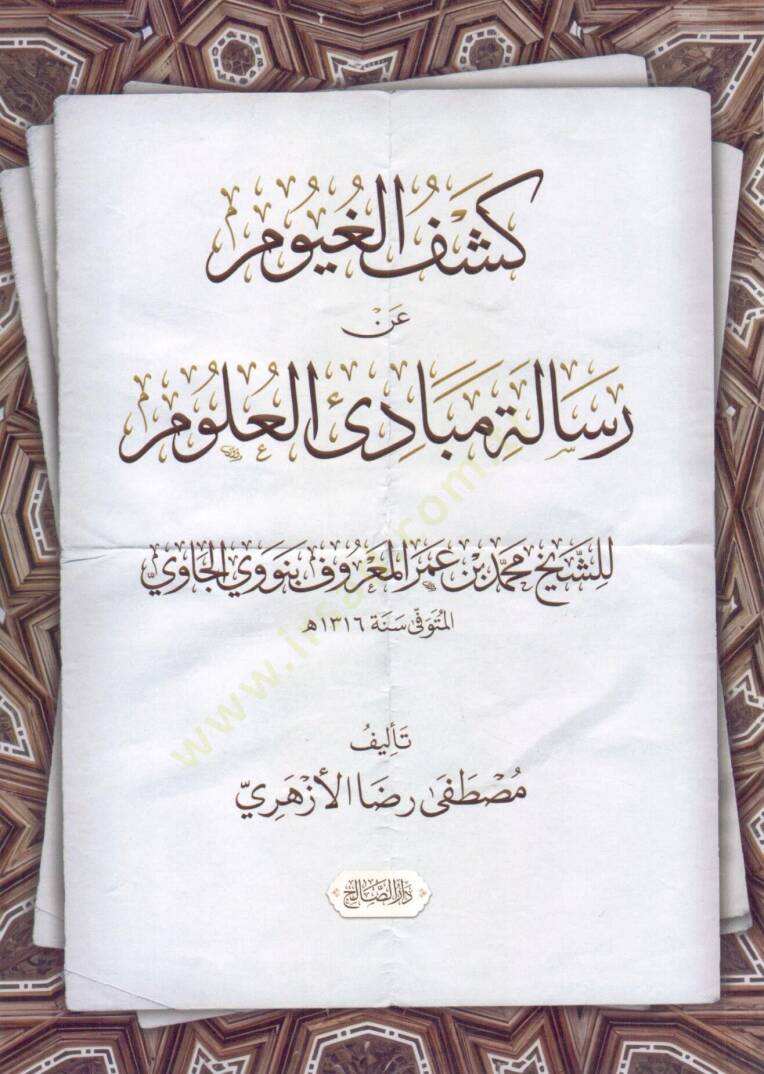 كَشْفُ الغُيُومِ
عَنْ
رِسَالَةِ مَبَادِئِ العُلُومِ
لِلشَّيْخِ مُحَمَّد بْنِ عُمَرَ المَعْرُوفِ بِنَوَوِي الجَاوِيِّ
المُتَوَفَّى سَنَةَ ١٣١٦هـ
تَأْلِيفُ
مُصْطَفَى رِضَا الأَزْهَرِيّ
دَارُ الصَّالِحِ